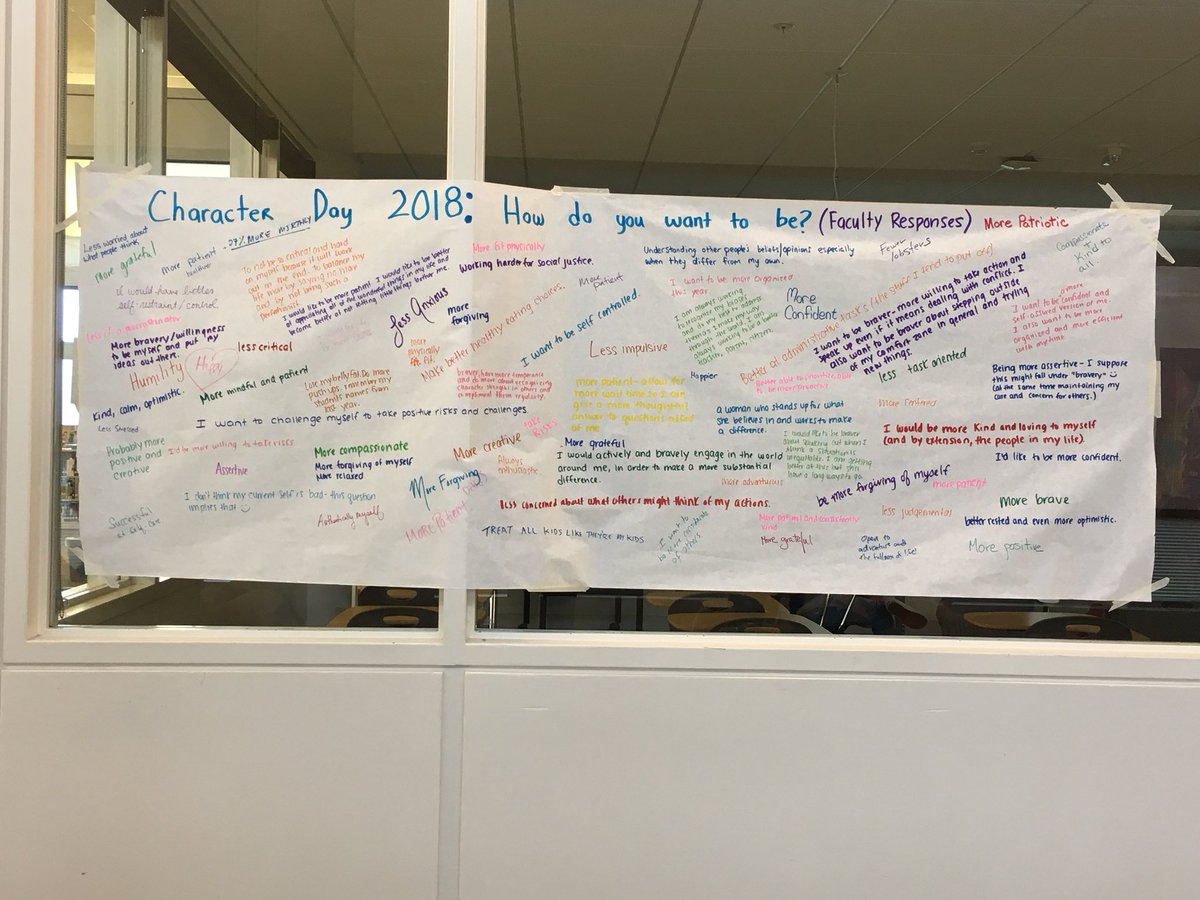 Character Day 2018: How do you want to be? (Faculty Responses)
More Patriotic
Less worried about
what people think
More grateful
more patient
.07% MORE MIRTHY
I would have better
self-restraint/control
To not be so critical and hard
on myself because it will work
out in the end. To balance my
life more by saying no more
and by not being such a
perfectionist
I would like to be more patient. I would like to be better
at appreciating all of the wonderful things in my life and
become better at not letting little things bother me.
Less Anxious
More fit physically
Working harder for social justice.
more
forgiving
more
physically
fit.
Make better healthy eating choices.
More
Patient
I want to be self controlled.
Less impulsive
Understanding other people's beliefs/opinions especially
when they differ from my own.
Fewer
lobsters
Compassionate
+
Kind to
all.
I want to be more organized
this year.
More
Confident
Better at administrative tasks (the stuff I tend to put off)
I want to be braver - more willing to take action and
speak up even if it means dealing with conflict. I
also want to be braver about stepping outside
of my comfort zone in general and trying
new things.
I want to be a more confident and
self assured version of me.
I also want to be more
organized and more efficient
with my time
less task oriented
Being more assertive - I suppose
this might fall under "bravery" ☺
(at the same time maintaining my
care and concern for others.)
Less of a procrastinator
More bravery/willingness
to be myself and put my
ideas out there.
Humility
Happy
less critical
More mindful and patient
Lose my belly fat. Do more
push ups. Remember my
students names from
last year.
Kind, calm, optimistic.
Less Stressed
I want to challenge myself to take positive risks and challenges.
braver, have more temperance
and do more about recognizing
character strengths in others and
compliment them regularly.
more patient - allow for
more wait time so I can
give a more thoughtful
answer to questions asked
of me
Happier
Better able to prioritize, able
to be more present.
a woman who stands up for what
she believes in and wants to make
a difference.
More Centered
I would be more Kind and loving to myself
(and by extension, the people in my life)
I'd like to be more confident.
Probably more
positive and
creative
I'd be more willing to take risks
Assertive
More compassionate
More forgiving of myself
More relaxed
More creative
take
Risks
Always
enthusiastic
More grateful
I would actively and bravely engage in the world
around me, in order to make a more substantial
difference.
I would like to be braver
about speaking out when I
think a situation is
inequitable. I am getting
better at this but still
have a long ways to go.
More adventurous
I don't think my current self is bad - this question
implies that ☺
Authentically myself
More Forgiving
More Patient
less concerned about what others might think of my actions.
be more forgiving of myself
more patient
less judgemental
More brave
better rested and even more optimistic.
Successful
at self-care
TREAT ALL KIDS LIKE THEY'RE MY KIDS
I want to
be more considerate
of others
More patient and consistently
kind
More grateful
Open to
adventure and
the fullness of life!
More positive